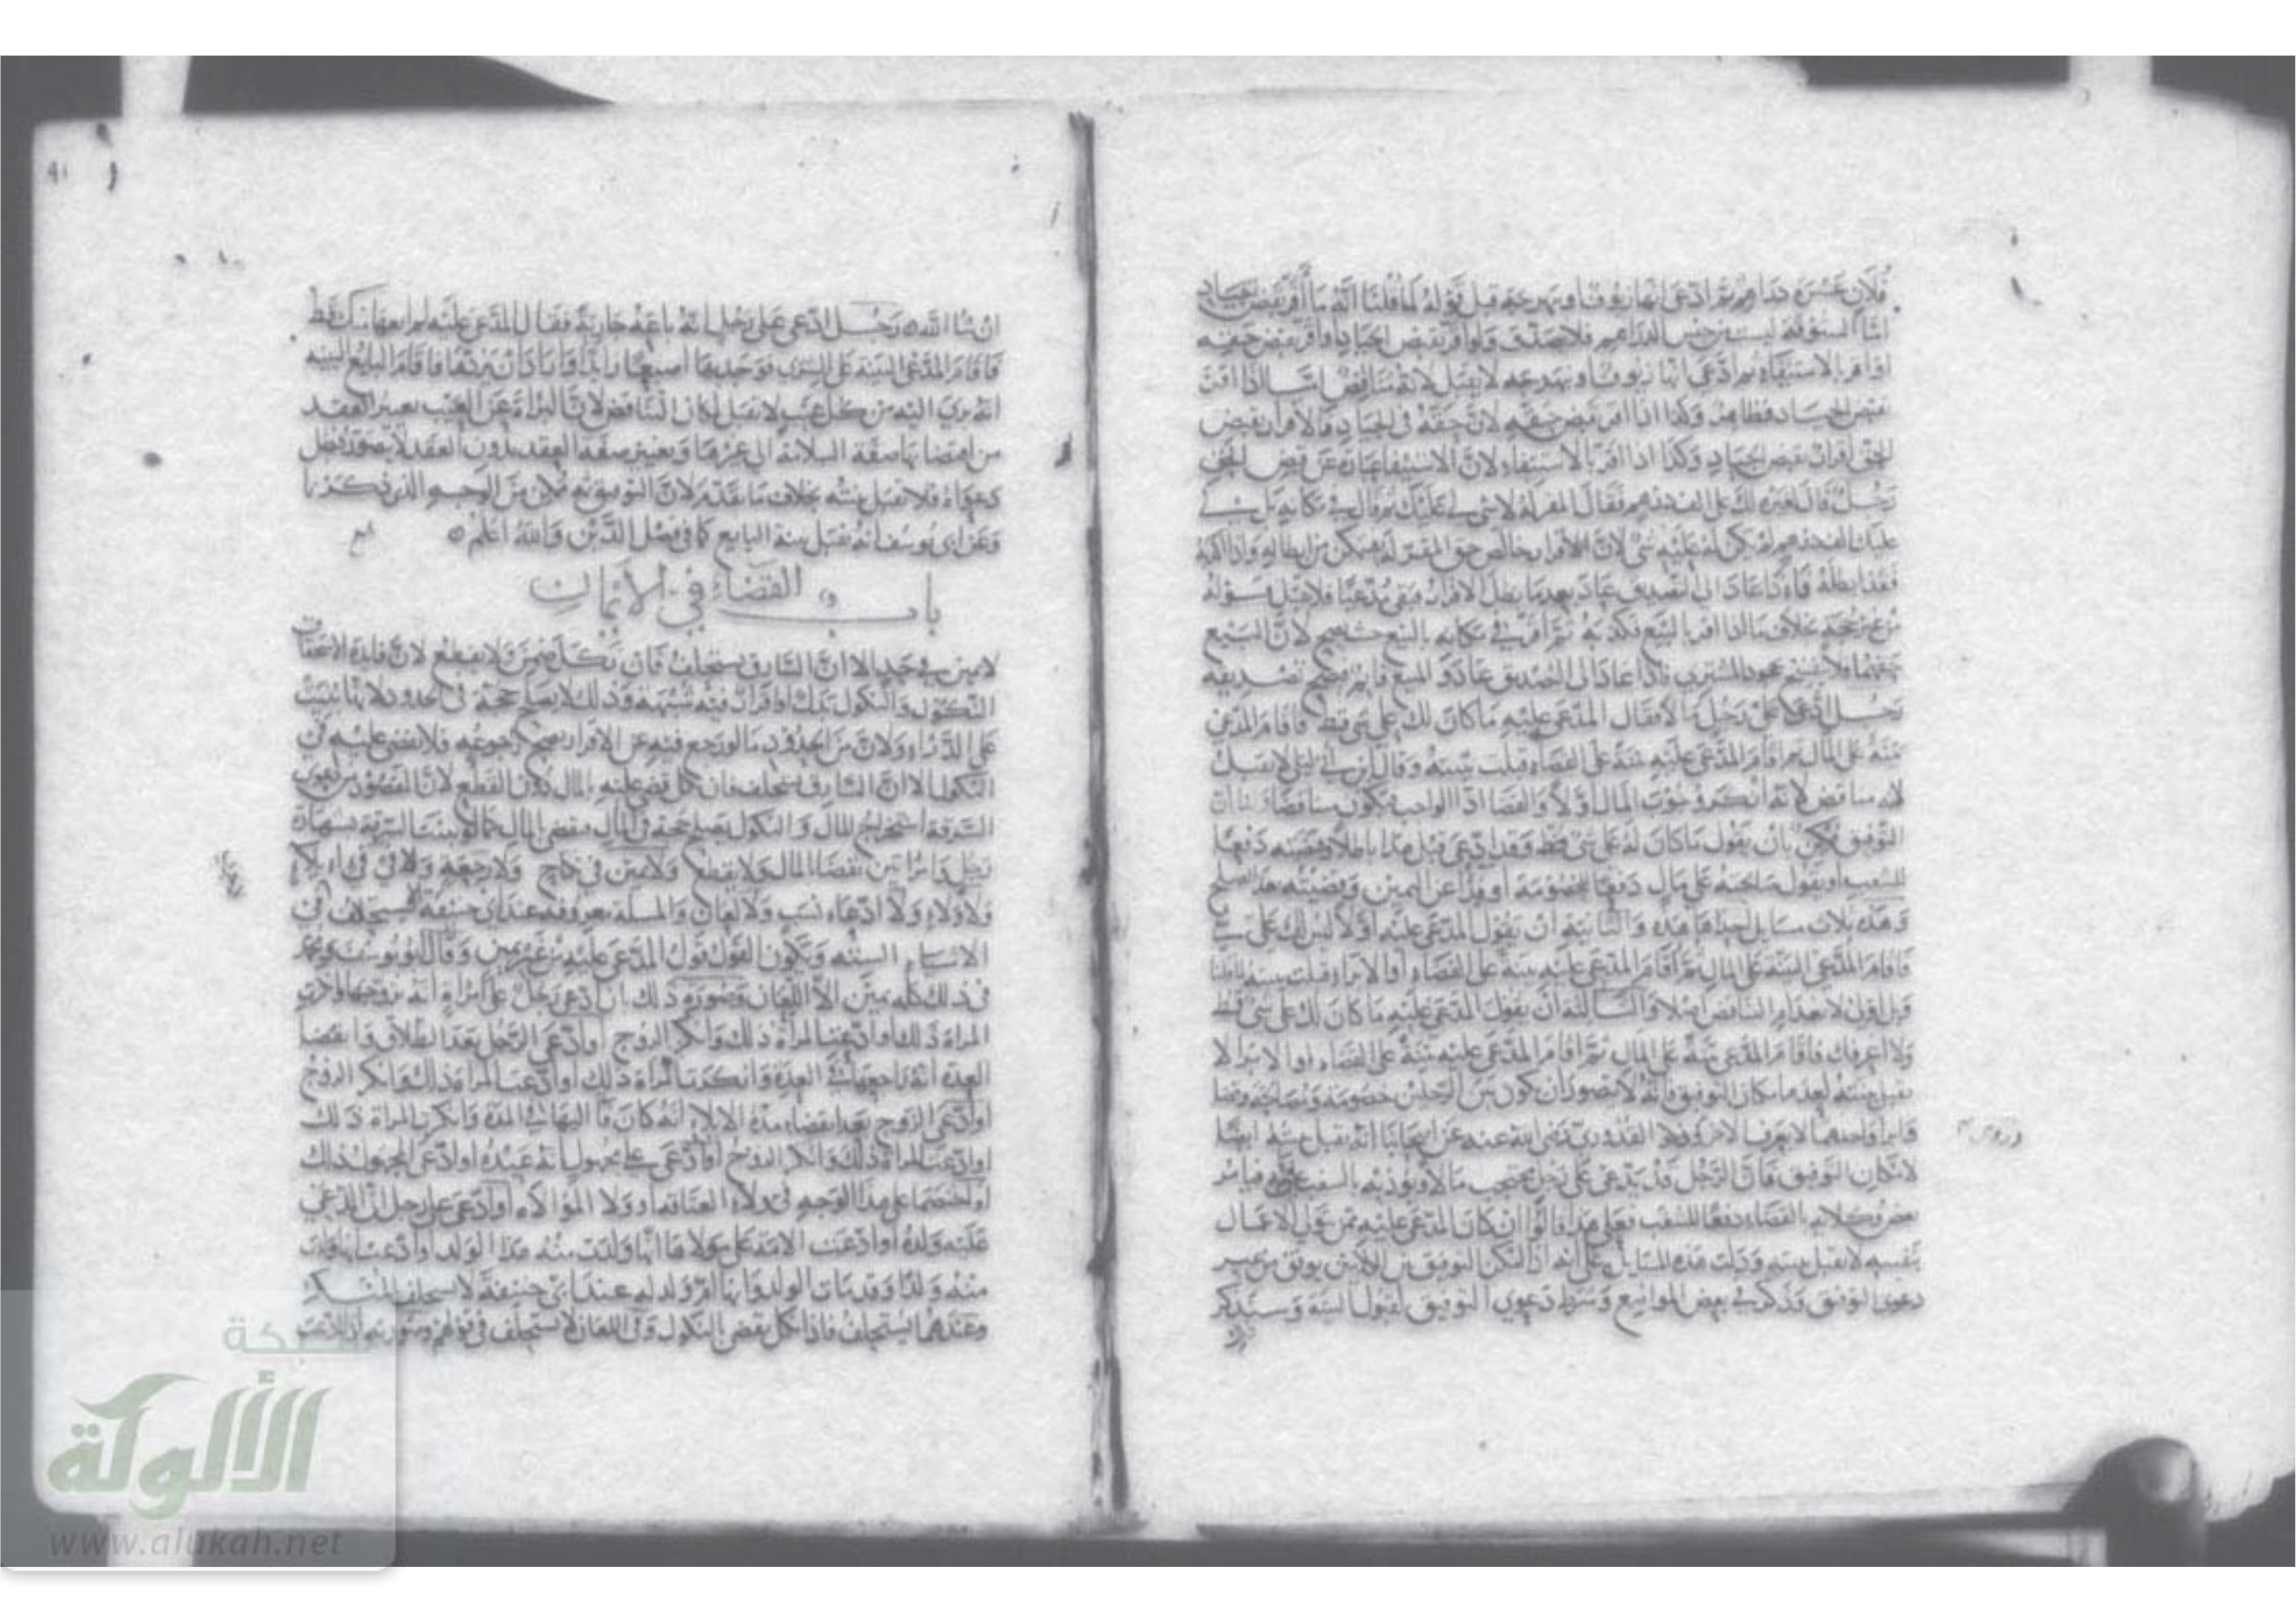 فلان عشرة دراهم ثم ادعى انها زيوف او نبهرجة قبل قوله كما قلنا انه ما أقر بقبض الجياد
اما الستوقة ليست من جنس الدراهم فلا يصدق ولو اقر بقبض الجياد او اقر بقبض حقه
او اقر بالاستيفاء ثم ادعى انها زيوف او نبهرجة لا يقبل لانه مناقض اما اذا اقر
بقبض الجياد فظاهر وكذا اذا اقر بقبض حقه لان حقه في الجياد فالاقرار بقبض
الحق اقرار بقبض الجياد وكذا اذا اقر بالاستيفاء لان الاستيفا عبارة عن قبض الحق
رجل قال لغيره لك علي الف درهم فقال المقر له لا شي لي عليك ثم قال في مكانه بل لي
عليك الف درهم لم يكن له عليه شي لان الاقرار خالص حق المقر له فيمكن من ابطاله واذا اكذبه
فقد ابطله فاذا عاد الى التصديق عاد بعدما بطل الاقرار فبقي مدعيا فلا يقبل قوله
من غير حجة بخلاف ما اذا اقر بالبيع فكذبه ثم اقر في مكانه بالبيع حيث يصح لان البيع
فلا ينفسخ بجحود المشتري فاذا عاد الى التصديق عاد والبيع قايم فيصح تصديقه
رجل ادعى على رجل مالا فقال المدعى عليه ما كان لك علي شي قط فاقام المدعي
بينة على المال ثم اقام المدعى عليه بينة على القضاء قبلت بينته وقال ابن ابي ليلى لا تقبل
لانه مناقض لانه أنكر وجوب المال اولا والقضا اداء الواجب فيكون مناقضا ولنا ان
التوفيق ممكن بان يقول ما كان له علي شي قط وقد ادعى قبل هذا باطلا وقضيته دفعا
للشغب او يقول صالحته على مال دفعا للخصومة او فدا عن اليمين وقضيته هذا الصلح
وهذه ثلاث مسايل احداها هذه والثانية ان يقول المدعى عليه اولا ليس لك علي شي
فاقام المدعي البينة على المال ثم اقام المدعى عليه بينة على القضاء او الابراء قبلت بينته
لانعدام التناقض اصلا والثالثة ان يقول المدعى عليه ما كان لك علي شي قط
ولا اعرفك فاقام المدعي بينة على المال ثم اقام المدعى عليه بينة على القضاء او الابرا لا
تقبل بينته لعدم امكان التوفيق فانه لا يتصور ان يكون بين الرجلين خصومة ومصالحة وقضا
وابرا واحدهما لا يعرف الاخر وذكر القدوري رضي الله عنه عن اصحابنا انه تقبل بينته ايضا
لامكان التوفيق فان الرجل قد يدعي على رجل محتجب مالا ويوذيه بالشغب فيامر
بعض وكلايه بالقضاء دفعا للشغب فعلى هذا قالوا ان كان المدعى عليه ممن يتولى الاعمال
بنفسه لا تقبل بينته ودلت هذه المسايل على انه اذا امكن التوفيق بين الامرين يوفق من غير
دعوى التوفيق وذكر في بعض المواضع وشرط دعوى التوفيق لقبول البينة وسنذكر
ان شا الله رجل ادعى على رجل انه باعه جارية فقال المدعى عليه لم ابعها منك قط
فاقام المدعي البينة على الشرى فوجد بها اصبعا زايدا واراد ان يردها فاقام البايع البينة
انه بري اليه من كل عيب لا تقبل لمكان التناقض لان البراءة عن العيب تغيير العقد
من اقتضايها صفة السلامة الى غيرها وتغيير صفة العقد بدون العقد لا يتصور
دعواه فلا تقبل بينته بخلاف ما تقدم لان التوفيق ثمه ممكن من الوجه الذي ذكرنا
وعن ابي يوسف انه تقبل بينة البايع كما في فصل الدين والله اعلم
باب القضاء في الأيمان
لا يمين في حد الا ان السارق يستحلف فان نكل ضمن ولا يقطع لان فايدة الاستحلاف
النكول والنكول بذل او اقرار فيه شبهة وذلك لا يصلح حجة في الحدود لانها تبتنى
على الدراء ولان من الحدود ما لو رجع فيه عن الاقرار صح رجوعه فلا يقضى عليه في
النكول الا ان السارق يستحلف فان نكل قضي عليه بالمال دون القطع لان المقصود من دعوى
السرقة استخراج المال والنكول يصلح حجة في المال فيقضى بالمال كما لو ثبتت السرقة بشهادة
رجل وامراتين يقضى بالمال ولا يقطع ولا يمين في نكاح ولا رجعة ولا في في ايلاء
ولا ولاء ولا ادعاء نسب ولا لعان والمسلة معروفة عند ابي حنيفة لا يستحلف في
الاشياء الستة ويكون القول قول المدعى عليه من غير يمين وقال ابو يوسف ومحمد
في ذلك كله يمين الا اللعان وصورة ذلك ان ادعى رجل على امراة انه تزوجها وانكرت
المراة ذلك او ادعت المراة ذلك وانكر الزوج او ادعى الرجل بعد الطلاق وانقضا
العدة انه راجعها في العدة وانكرت المراة ذلك او ادعت المراة ذلك وانكر الزوج
او ادعى الزوج بعد انقضاء مدة الايلاء انه كان فا اليها في المدة وانكرت المراة ذلك
او ادعت المراة ذلك وانكر الزوج او ادعى على مجهول انه عبده او ادعى المجهول ذلك
او اختصما على هذا الوجه في ولاء العتاقة او ولا الموالاة او ادعى على رجل ان المدعى
عليه ولده او ادعت الامة على مولاها انها ولدت منه هذا الولد او ادعت انها ولدت
منه ولدا وقد مات الولد وانها ام ولد له عند ابي حنيفة لا يستحلف المنكر
وعندهما يستحلف فاذا نكل يقضى بالنكول وفي اللعان لا يستحلف في قولهم وصورته
الألوكة
www.alukah.net